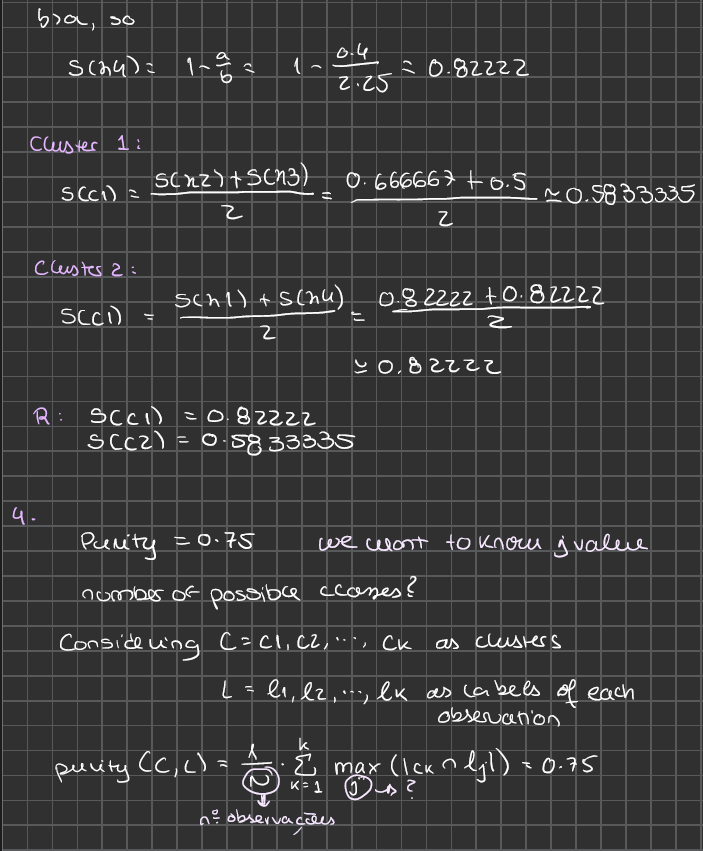 b>a, so
S(x4) = 1 - a/b = 1 - 0.4/2.25 = 0.82222
Cluster 1:
S(c1) = (S(x2) + S(x3))/2 = (0.666667 + 0.5)/2 ≃ 0.5833335
Cluster 2:
S(c1) = (S(x1) + S(x4))/2 = (0.82222 + 0.82222)/2
≃ 0.82222
R: S(c1) = 0.82222
S(c2) = 0.5833335
4.
Purity = 0.75 we want to know j value
number of possible classes?
Considering C = C1, C2, ..., Ck as clusters
L = l1, l2, ..., lk as labels of each
observation
purity (C, L) = 1/N · Σ k=1 k max j (|ck ∩ lj|) = 0.75
↳ ?
nº observações